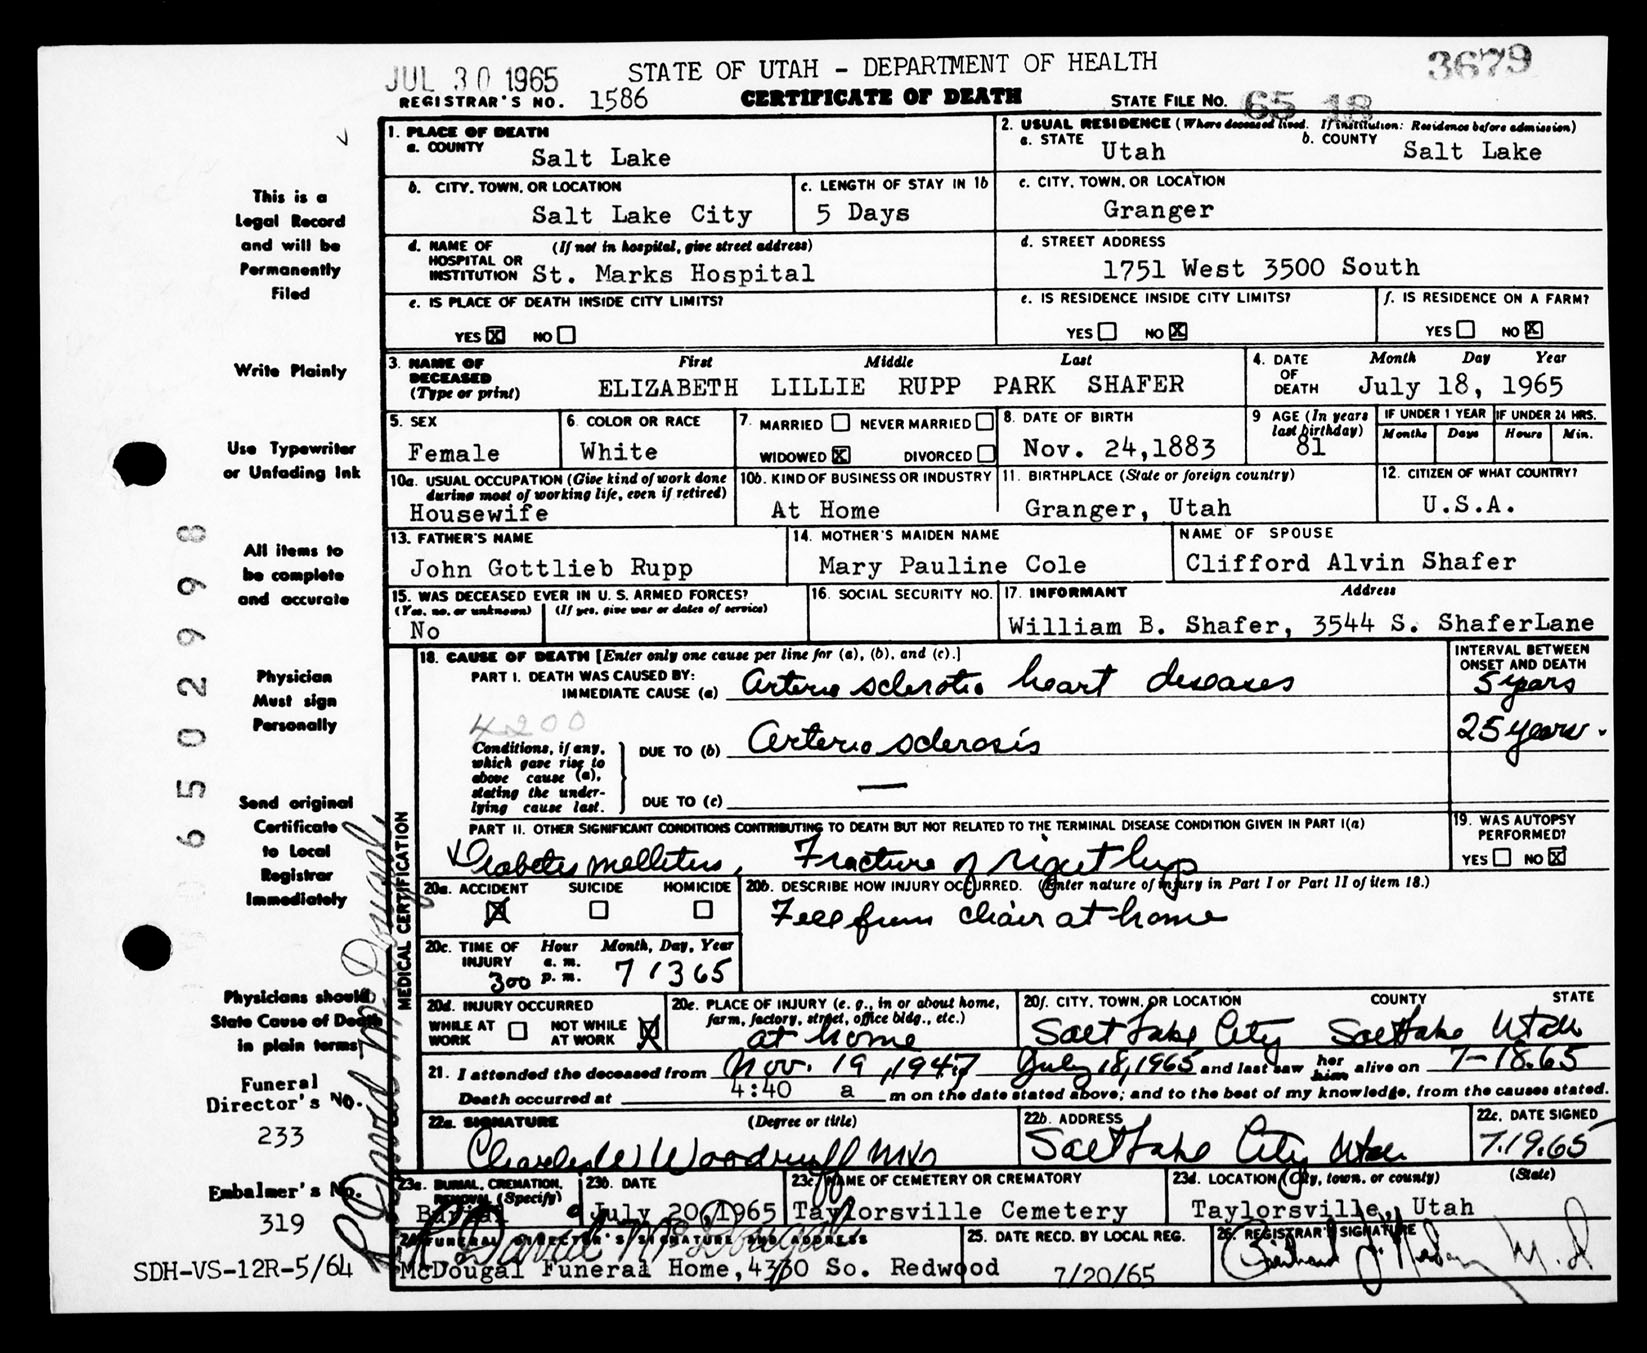 JUL 30 1965
STATE OF UTAH - DEPARTMENT OF HEALTH
3679
REGISTRAR'S NO. 1586
CERTIFICATE OF DEATH
STATE FILE NO. 65 18
1. PLACE OF DEATH
a. COUNTY Salt Lake
2. USUAL RESIDENCE (Where deceased lived. If institution: Residence before admission)
a. STATE Utah b. COUNTY Salt Lake
b. CITY, TOWN, OR LOCATION Salt Lake City
c. LENGTH OF STAY IN 1b 5 Days
c. CITY, TOWN, OR LOCATION Granger
d. NAME OF HOSPITAL OR INSTITUTION (If not in hospital, give street address) St. Marks Hospital
d. STREET ADDRESS 1751 West 3500 South
e. IS PLACE OF DEATH INSIDE CITY LIMITS?
YES X NO
e. IS RESIDENCE INSIDE CITY LIMITS?
YES NO X
f. IS RESIDENCE ON A FARM?
YES NO X
3. NAME OF DECEASED (Type or print) First Middle Last
ELIZABETH LILLIE RUPP PARK SHAFER
4. DATE OF DEATH Month Day Year
July 18, 1965
5. SEX Female
6. COLOR OR RACE White
7. MARRIED NEVER MARRIED
WIDOWED X DIVORCED
8. DATE OF BIRTH Nov. 24,1883
9 AGE (In years last birthday) 81
IF UNDER 1 YEAR Months Days
IF UNDER 24 HRS. Hours Min.
10a. USUAL OCCUPATION (Give kind of work done during most of working life, even if retired) Housewife
10b. KIND OF BUSINESS OR INDUSTRY At Home
11. BIRTHPLACE (State or foreign country) Granger, Utah
12. CITIZEN OF WHAT COUNTRY? U.S.A.
13. FATHER'S NAME John Gottlieb Rupp
14. MOTHER'S MAIDEN NAME Mary Pauline Cole
NAME OF SPOUSE Clifford Alvin Shafer
15. WAS DECEASED EVER IN U. S. ARMED FORCES?
(Yes, no, or unknown) (If yes, give war or dates of service)
No
16. SOCIAL SECURITY NO.
17. INFORMANT Address
William B. Shafer, 3544 S. ShaferLane
MEDICAL CERTIFICATION
18. CAUSE OF DEATH [Enter only one cause per line for (a), (b), and (c).]
INTERVAL BETWEEN ONSET AND DEATH
PART I. DEATH WAS CAUSED BY:
IMMEDIATE CAUSE (a) Arterio sclerotic heart diseases 5 years
4200
Conditions, if any, which gave rise to above cause (a), stating the underlying cause last.
DUE TO (b) Arterio sclerosis 25 years.
DUE TO (c) —
PART II. OTHER SIGNIFICANT CONDITIONS CONTRIBUTING TO DEATH BUT NOT RELATED TO THE TERMINAL DISEASE CONDITION GIVEN IN PART I(a)
Diabetes mellitus, Fracture of right hip
19. WAS AUTOPSY PERFORMED?
YES NO X
20a. ACCIDENT SUICIDE HOMICIDE
X
20b. DESCRIBE HOW INJURY OCCURRED. (Enter nature of injury in Part I or Part II of item 18.)
Fell from chair at home
20c. TIME OF INJURY Hour Month, Day, Year
a. m.
300 p. m. 7 13 65
20d. INJURY OCCURRED
WHILE AT WORK NOT WHILE AT WORK X
20e. PLACE OF INJURY (e. g., in or about home, farm, factory, street, office bldg., etc.)
at home
20f. CITY, TOWN, OR LOCATION COUNTY STATE
Salt Lake City Salt Lake Utah
21. I attended the deceased from Nov. 19, 1947 July 18, 1965 and last saw her him alive on 7-18.65
Death occurred at 4:40 a m on the date stated above; and to the best of my knowledge, from the causes stated.
22a. SIGNATURE (Degree or title)
Charles W Woodruff MD
22b. ADDRESS
Salt Lake City Utah
22c. DATE SIGNED
7.19.65
23a. BURIAL, CREMATION, REMOVAL (Specify) Burial
23b. DATE July 20, 1965
23c. NAME OF CEMETERY OR CREMATORY Taylorsville Cemetery
23d. LOCATION (City, town, or county) (State)
Taylorsville, Utah
24. FUNERAL DIRECTOR'S SIGNATURE AND ADDRESS
R. David McDougal
McDougal Funeral Home, 4330 So. Redwood
25. DATE RECD. BY LOCAL REG.
7/20/65
26. REGISTRAR'S SIGNATURE
M. D
This is a
Legal Record
and will be
Permanently
Filed
Write Plainly
Use Typewriter
or Unfading Ink
All items to
be complete
and accurate
Physician
Must sign
Personally
Send original
Certificate
to Local
Registrar
Immediately
Physicians should
State Cause of Death
in plain terms
Funeral
Director's No.
233
Embalmer's No.
319
SDH-VS-12R-5/64
6502998
R David McDougal